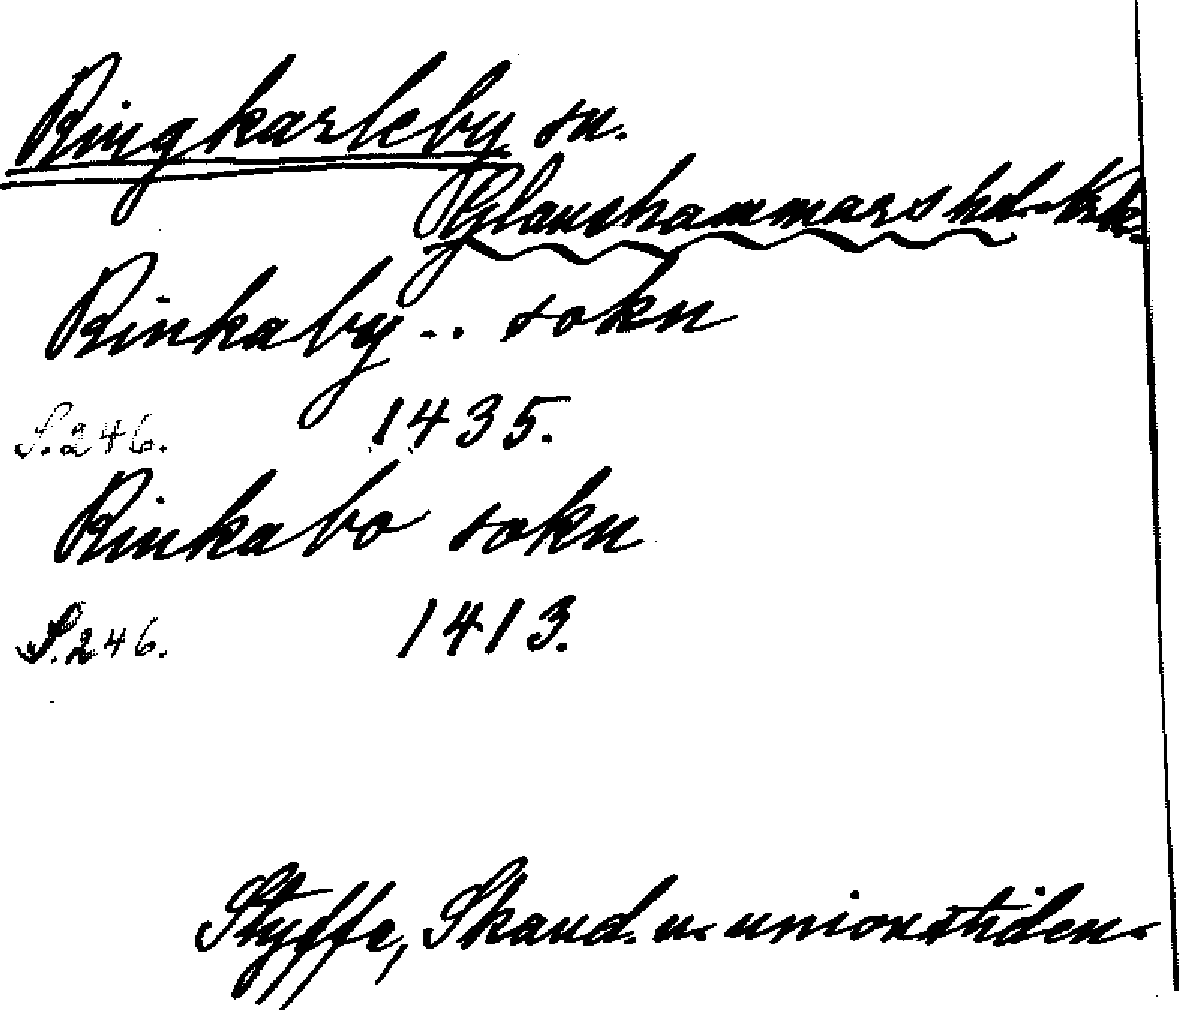 Ringkarleby sn.
Glanshammars hd. Nrk.
Rinkaby .. sokn
S. 246. 1435.
Rinkabo sokn
S. 246. 1413.
Styffe, Skand. u. unionstiden.